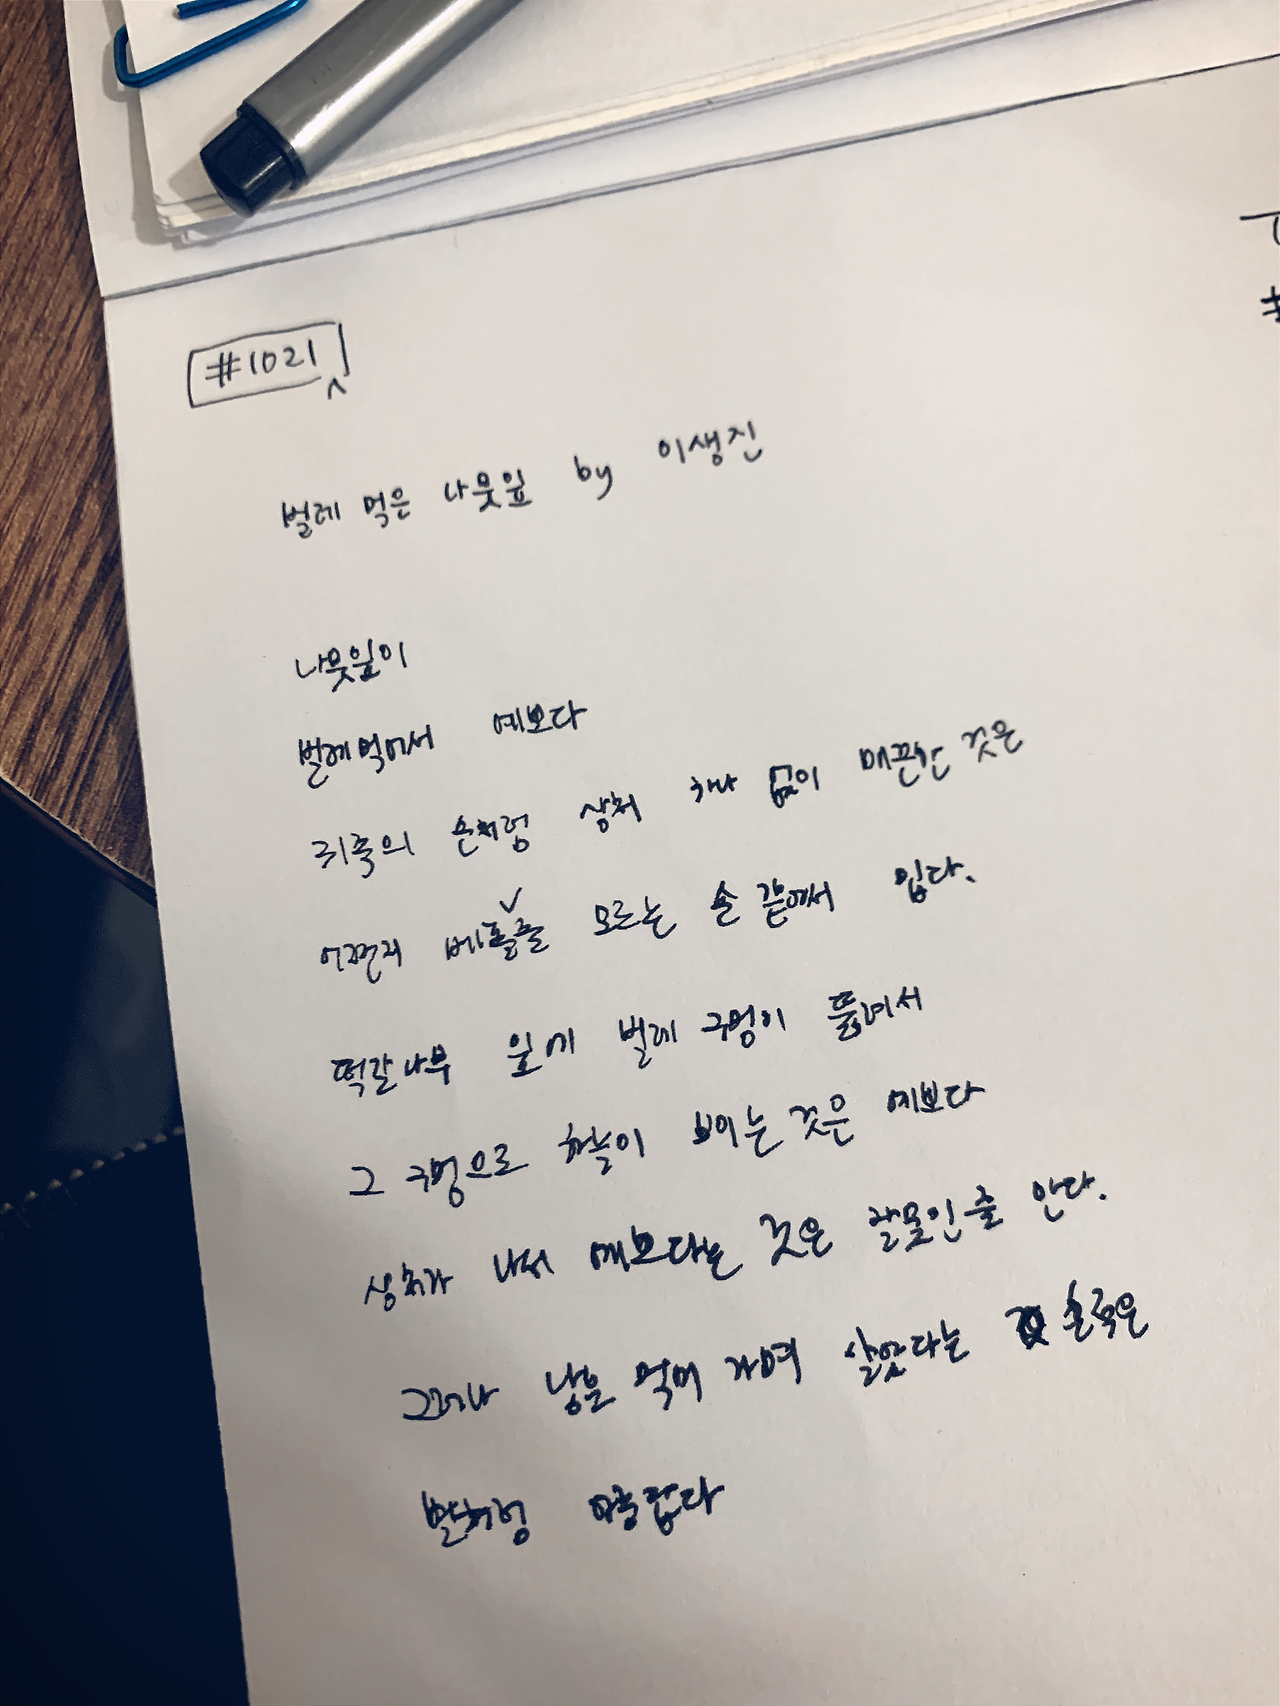 #1021
벌레 먹은 나뭇잎 by 이생진
나뭇잎이
벌레먹어서 예쁘다
귀족의 손처럼 상처 하나 없이 매끈한 것은
어쩐지 베풀줄 모르는 손 같아서 밉다.
떡갈나무 잎에 벌레 구멍이 뚫려서
그 구멍으로 하늘이 보이는 것은 예쁘다
상처가 나서 예쁘다는 것은 잘못인줄 안다.
그러나 남을 먹여 가며 살았다는 흔적은
별처럼 아름답다